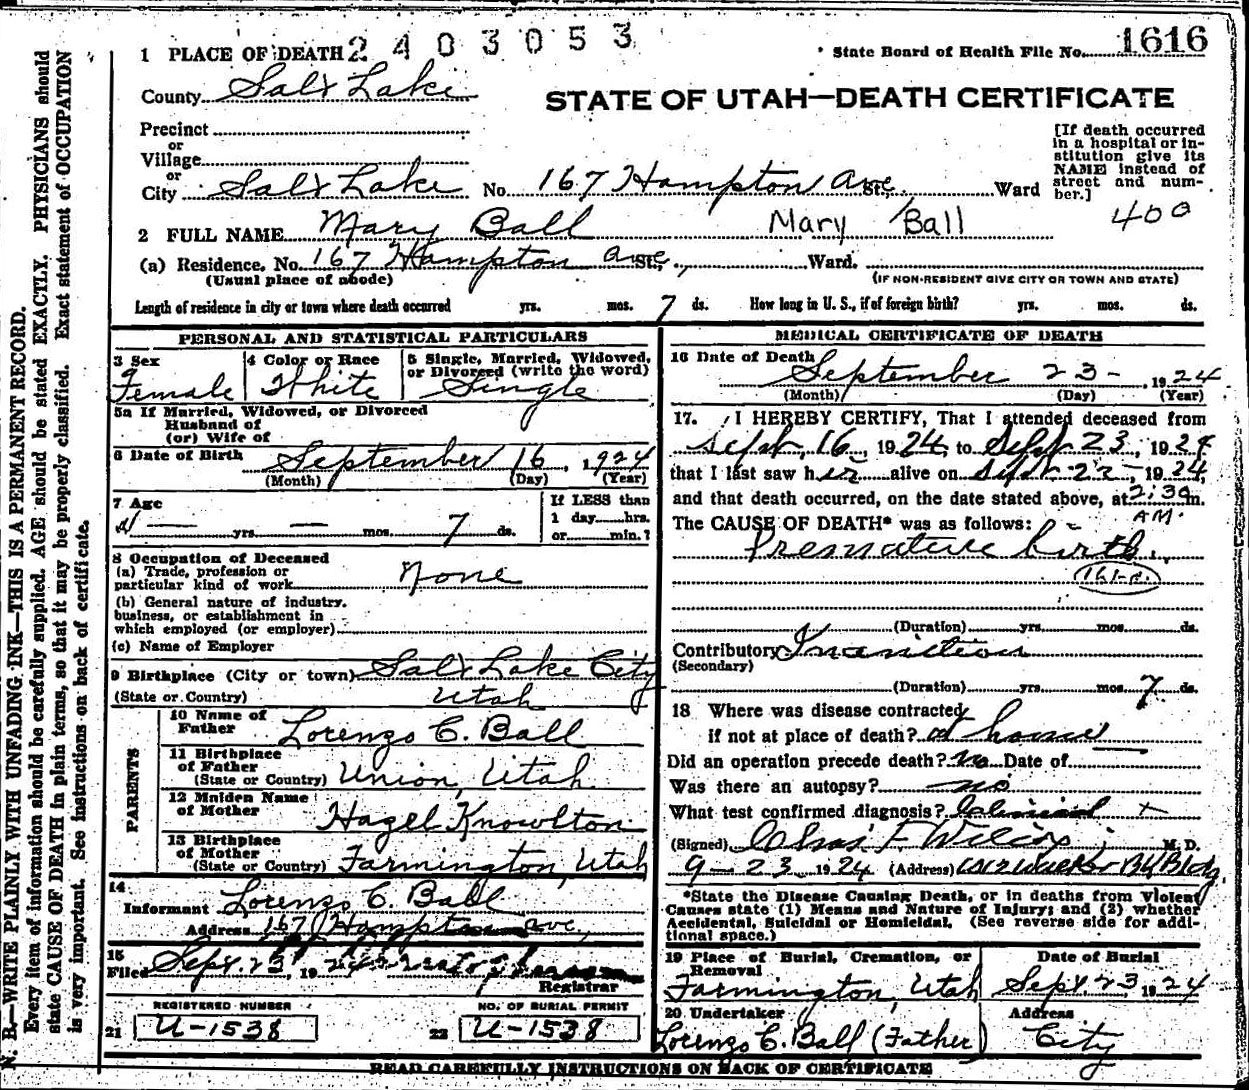 1 PLACE OF DEATH 2403053
State Board of Health File No. 1616
County Salt Lake
STATE OF UTAH—DEATH CERTIFICATE
Precinct
or
Village
or
City Salt Lake No. 167 Hampton Ave St., Ward
[If death occurred
in a hospital or in-
stitution give its
NAME instead of
street and num-
ber.]
400
2 FULL NAME Mary Ball Mary Ball
(a) Residence, No. 167 Hampton Ave St., Ward.
(Usual place of abode) (IF NON-RESIDENT GIVE CITY OR TOWN AND STATE)
Length of residence in city or town where death occurred yrs. mos. 7 ds. How long in U. S., if of foreign birth? yrs. mos. ds.
PERSONAL AND STATISTICAL PARTICULARS
3 Sex
Female
4 Color or Race
White
5 Single, Married, Widowed,
or Divorced (write the word)
Single
5a If Married, Widowed, or Divorced
Husband of
(or) Wife of
6 Date of Birth September 16, 1924
(Month) (Day) (Year)
7 Age
— yrs. — mos. 7 ds.
If LESS than
1 day hrs.
or min.?
8 Occupation of Deceased
(a) Trade, profession or
particular kind of work None
(b) General nature of industry,
business, or establishment in
which employed (or employer)
(c) Name of Employer
9 Birthplace (City or town) Salt Lake City
(State or Country) Utah
PARENTS
10 Name of
Father Lorenzo C. Ball
11 Birthplace
of Father
(State or Country) Union, Utah
12 Maiden Name
of Mother Hazel Knowlton
13 Birthplace
of Mother
(State or Country) Farmington, Utah
14
Informant Lorenzo C. Ball
Address 167 Hampton Ave,
15
Filed Sept. 23 1924
Registrar
REGISTERED NUMBER
21 U-1538
NO. OF BURIAL PERMIT
22 U-1538
MEDICAL CERTIFICATE OF DEATH
16 Date of Death September 23 - , 1924
(Month) (Day) (Year)
17. I HEREBY CERTIFY, That I attended deceased from
Sept. 16, 1924, to Sept 23, 1924
that I last saw her alive on Sept 22 - 1924,
and that death occurred, on the date stated above, at 2:30 m.
A.M.
The CAUSE OF DEATH* was as follows:
Premature birth.
(Duration) yrs. mos. ds.
Contributory Inanition
(Secondary)
(Duration) yrs. mos. 7 ds.
18 Where was disease contracted
if not at place of death? at home
Did an operation precede death? no Date of
Was there an autopsy? no
What test confirmed diagnosis? Clinical
(Signed) Chas F. Wilcox, M. D.
9-23 1924 (Address)
*State the Disease Causing Death, or in deaths from Violent
Causes state (1) Means and Nature of Injury; and (2) whether
Accidental, Suicidal or Homicidal. (See reverse side for addi-
tional space.)
19 Place of Burial, Cremation, or
Removal
Farmington, Utah
Date of Burial
Sept. 23, 1924
20 Undertaker
Lorenzo C. Ball (Father)
Address
City
READ CAREFULLY INSTRUCTIONS ON BACK OF CERTIFICATE
N. B.—WRITE PLAINLY WITH UNFADING INK—THIS IS A PERMANENT RECORD.
Every item of information should be carefully supplied. AGE should be stated EXACTLY. PHYSICIANS should
state CAUSE OF DEATH in plain terms, so that it may be properly classified. Exact statement of OCCUPATION
is very important. See instructions on back of certificate.